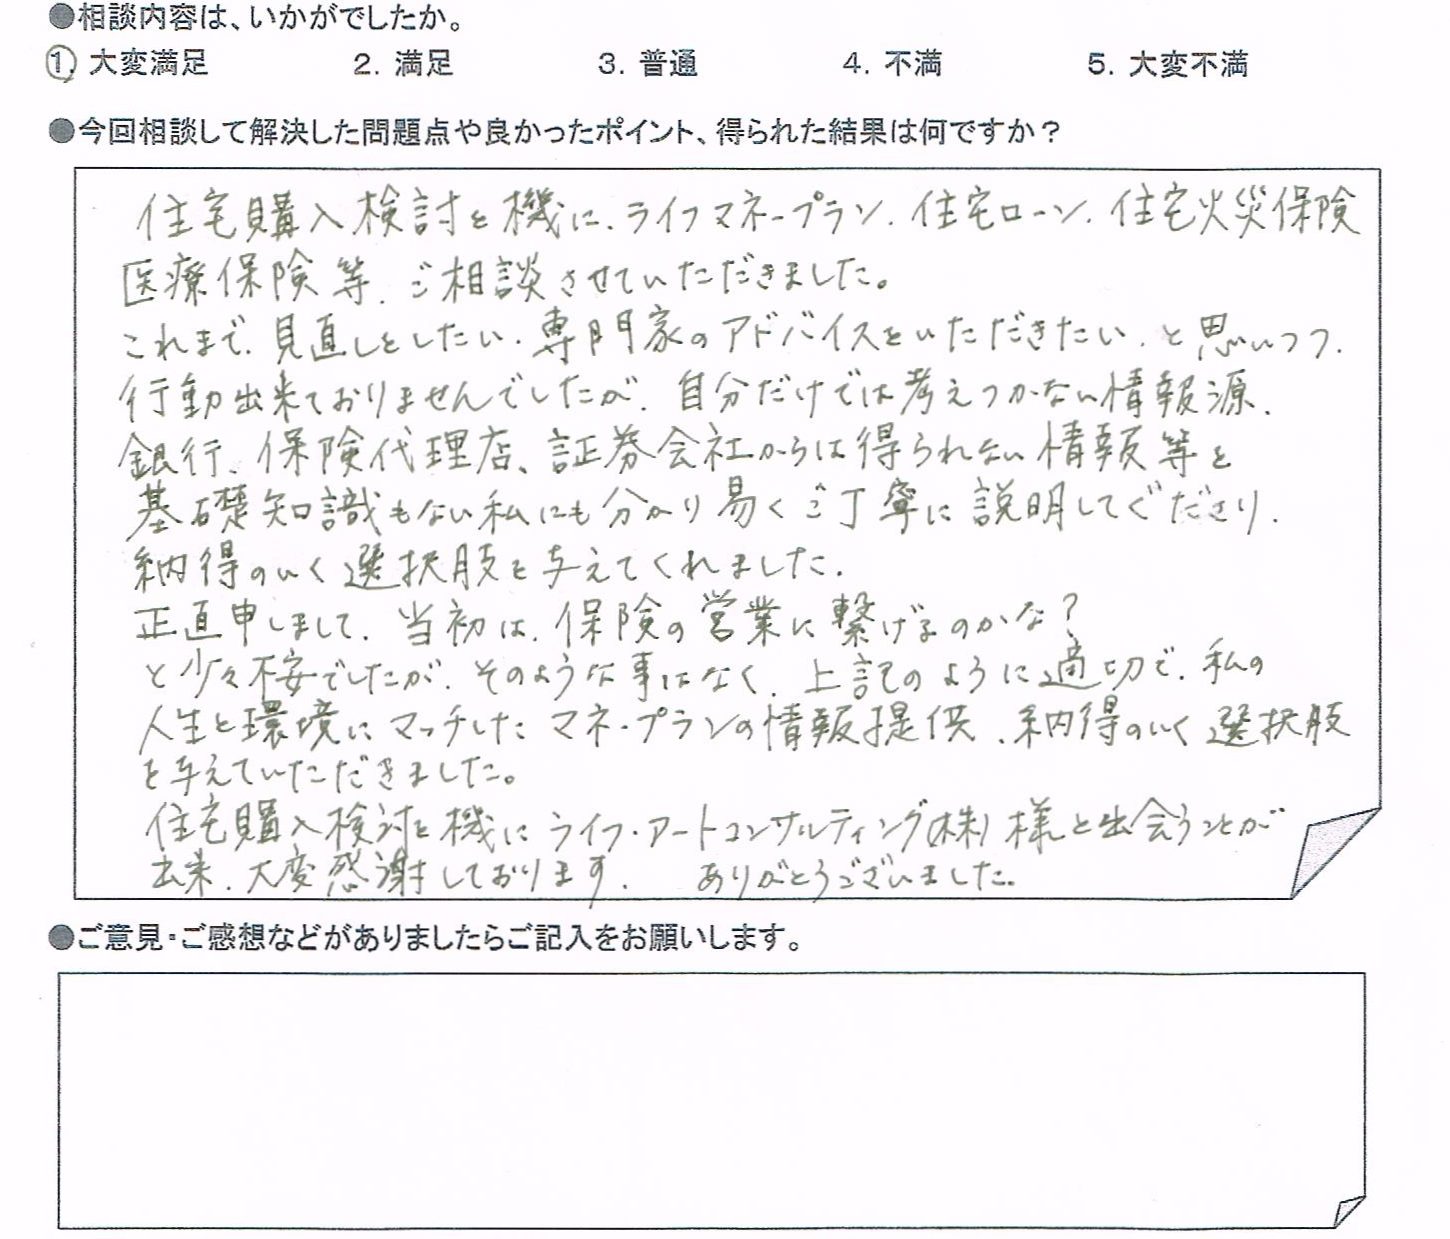 ●相談内容は、いかがでしたか。
1. 大変満足 2. 満足 3. 普通 4. 不満 5. 大変不満
●今回相談して解決した問題点や良かったポイント、得られた結果は何ですか？
住宅購入検討を機に、ライフマネープラン、住宅ローン、住宅火災保険
医療保険等、ご相談させていただきました。
これまで、見直しをしたい、専門家のアドバイスをいただきたい、と思いつつ、
行動出来ておりませんでしたが、自分だけでは考えつかない情報源、
銀行、保険代理店、証券会社からは得られない情報等を
基礎知識もない私にも分かり易くご丁寧に説明してくださり、
納得のいく選択肢を与えてくれました。
正直申しまして、当初は、保険の営業に繋げるのかな？
と少々不安でしたが、そのような事はなく、上記のように適切で、私の
人生と環境にマッチしたマネ・プランの情報提供、納得のいく選択肢
を与えていただきました。
住宅購入検討を機にライフ・アートコンサルティング(株)様と出会うことが
出来、大変感謝しております。 ありがとうございました。
●ご意見・ご感想などがありましたらご記入をお願いします。